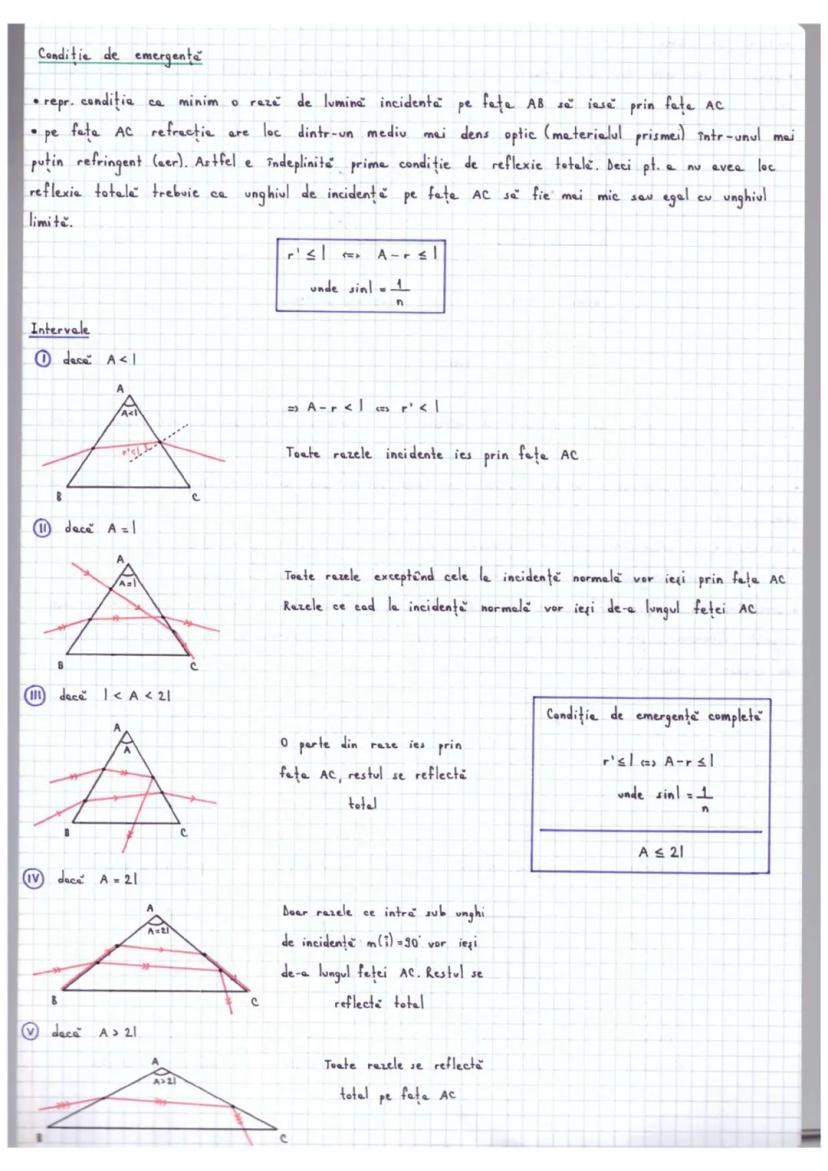 Condiția de emergență
• repr. condiția ca minim o rază de lumină incidentă pe fața AB să iasă prin fața AC
• pe fața AC refracția are loc dintr-un mediu mai dens optic (materialul prismei) într-unul mai
puțin refringent (aer). Astfel e îndeplinită prima condiție de reflexie totală. Deci pt. a nu avea loc
reflexia totală trebuie ca unghiul de incidență pe fața AC să fie mai mic sau egal cu unghiul
limită.
r' ≤ l <=> A-r ≤ l
unde sinl = 1/n
Intervale
I dacă A < l
A
A<l
r'<l
B
C
=> A-r < l <=> r' < l
Toate razele incidente ies prin fața AC
II dacă A = l
A
A=l
B
C
Toate razele exceptând cele la incidență normală vor ieși prin fața AC
Razele ce cad la incidență normală vor ieși de-a lungul feței AC
III dacă l < A < 2l
A
A
B
C
O parte din raze ies prin
fața AC, restul se reflectă
total
Condiția de emergență completă
r' ≤ l <=> A-r ≤ l
unde sinl = 1/n
A ≤ 2l
IV dacă A = 2l
A
A=2l
B
C
Doar razele ce intră sub unghi
de incidență m(î)=90° vor ieși
de-a lungul feței AC. Restul se
reflectă total
V dacă A > 2l
A
A>2l
B
C
Toate razele se reflectă
total pe fața AC